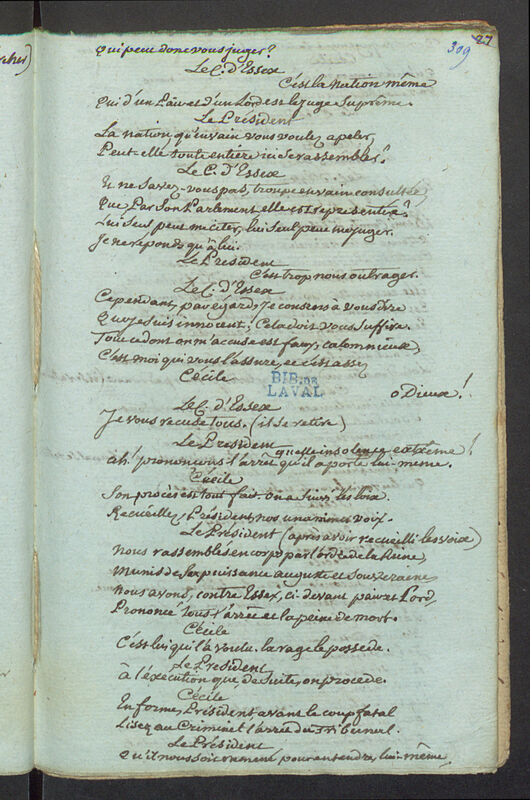 27
309
qui peut donc vous juger?
Le C. d'Essex
C'est la nation même
qui d'un Pair et d'un Lord est le juge Suprême.
Le Président
La nation qu'en vain vous voulez apeler,
Peut-elle toute entière ici se rassembler?
Le C. d'Essex
Et ne savez-vous pas, troupe en vain consultée
Que Par Son Parlement elle est représentée?
Lui seul peut me citer, lui seul peut me juger.
Je ne réponds qu'à lui.
Le Président
C'est trop nous outrager.
Le C. d'Essex
Cependant, par égard, Je consens à vous dire
Que je suis innocent; Cela doit vous Suffire.
Tout ce dont on m'accuse est faux, calomnieux,
C'est moi qui vous l'assure, et c'est assez
Cécile
o Dieux!
BIB. DE
LAVAL
Le C. d'Essex
Je vous récuse tous. (il se retire)
Le Président
quelle insolence extrême!
ah! prononçons l'arrêt qu'il a porté lui-même.
Cécile
Son procès est tout fait on a Suivi les loix
Recueillez, Président, nos unanimes voix.
Le Président (après avoir recueilli les voix)
Nous rassemblés en corps par l'ordre de la Reine,
Munis de Sa puissance auguste et Souveraine,
Nous avons, contre Essex, ci-devant pair et Lord,
Prononcé tous l'arrêt et la peine de mort.
Cécile
C'est lui qui l'a voulu. la rage le possède.
Le Président
à l'exécution que de Suite, on procède.
Cécile
En forme, Président avant le coup fatal
Lisez au Criminel l'arrêt du Tribunal.
Le Président
Qu'il nous soit ramené pour entendre, lui-même,